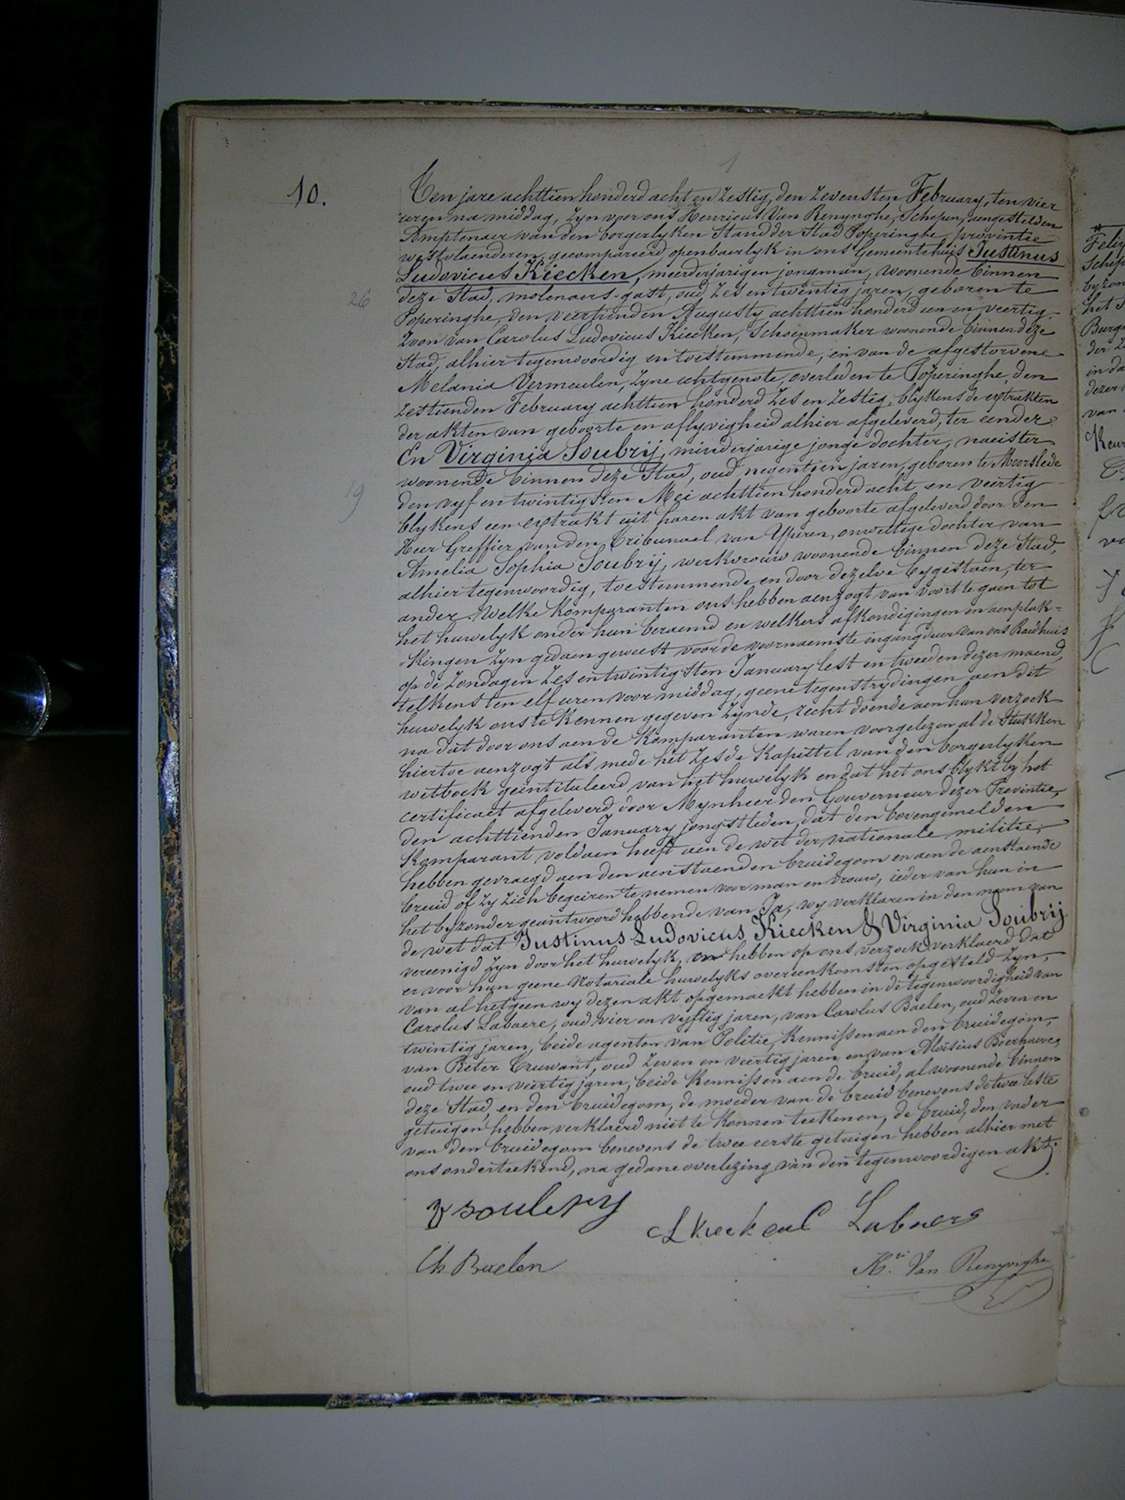 10.
Ten jare achttien honderd acht en zestig, den zevensten February, ten vier
uren na middag, zyn voor ons Henricus Van Renynghe, Schepen, aengestelden
Amptenaer van den borgerlyken Stand der Stad Poperinghe, provintie
westvlaenderen, gecompareerd openbaerlyk in ons Gemeentehuys Justinus
Ludovicus Kiecken, meerderjarigen jongman, woonende binnen
deze Stad, molenaers-gast, oud zes en twintig jaren, geboren te
26
Poperinghe, den veertienden Augusty achttien honderd een en veertig
zoon van Carolus Ludovicus Kiecken, Schoenmaker woonende binnen deze
Stad, alhier tegenwoordig en toestemmende, en van de afgestorvene
Melania Vermeulen, zyne echtgenote, overleden te Poperinghe, den
zestienden February achttien honderd zes en zestig, blykens de extrakten
der akten van geboorte en aflyvigheid alhier afgeleverd, ter eender
En Virginia Soubrij, minderjarige jonge dochter, naeister
woonende binnen deze Stad, oud negentien jaren, geboren te Moorslede
19
den vyf en twintigsten Mei achttien honderd acht en veertig
blykens een extrakt uit haren akt van geboorte afgeleverd door den
Heer Greffier van den Tribunael van Yperen, onwettige dochter van
Amelia Sophia Soubrij, werkvrouw woonende binnen deze Stad,
alhier tegenwoordig, toestemmende en door dezelve bygestaen, ter
ander. Welke komparanten ons hebben aenzogt van voort te gaen tot
het huwelyk onder hun beraemd en welkers afkondigingen en aenplak-
kingen zyn gedaen geweest voor de voornaemste ingangdeur van ons Raedhuis
op de zondagen zes en twintigsten January lest en tweeden dezer maend,
telkens ten elf uren voor middag, geene tegenstrydingen aen dit
huwelyk ons te kennen gegeven zynde, recht doende aen hun verzoek
na dat door ons aen de komparanten waren voorgelezen al de stukken
hiertoe aenzogt als mede het zesde kapittel van den borgerlyken
wetboek geintituleerd van het huwelyk en dat het ons blykt by het
certificaet afgeleverd door Mynheer den Gouverneur dezer Provintie,
den achttienden January jongstleden, dat den bovengemelden
komparant voldaen heeft aen de wet der nationale militie,
hebben gevraegd aen den aenstaenden bruidegom en aen de aenstaende
bruid of zy zich begeiren te nemen voor man en vrouw, ieder van hun in
het byzonder geantwoord hebbende van Ja, wy verklaren in den naem van
de wet dat Justinus Ludovicus Kiecken & Virginia Soubrij
vereenigd zyn door het huwelyk, en hebben op ons verzoek verklaerd dat
er voor hun geene Notariale huwelyks overeenkomsten opgesteld zyn,
van al hetgeen wy dezen akt opgemaekt hebben in de tegenwoordigheid van
Carolus Labaere, oud vier en vyftig jaren, van Carolus Baelen, oud zeven en
twintig jaren, beide agenten van Politie, kennissen aen den bruidegom,
van Pieter Truwant, oud zeven en veertig jaren en van Aloïsius Boerhaeve,
oud twee en veertig jaren, beide kennissen aen de bruid, al woonende binnen
deze Stad, en den bruidegom, de moeder van de bruid benevens de twee leste
getuigen hebben verklaerd niet te konnen teekenen, de bruid, den vader
van den bruidegom benevens de twee eerste getuigen hebben alhier met
ons onderteekend, na gedane overlezing van den tegenwoordigen akt.
V soubrij
CL Kiecken
Labaere
Ch Baelen
Hri. Van Renynghe